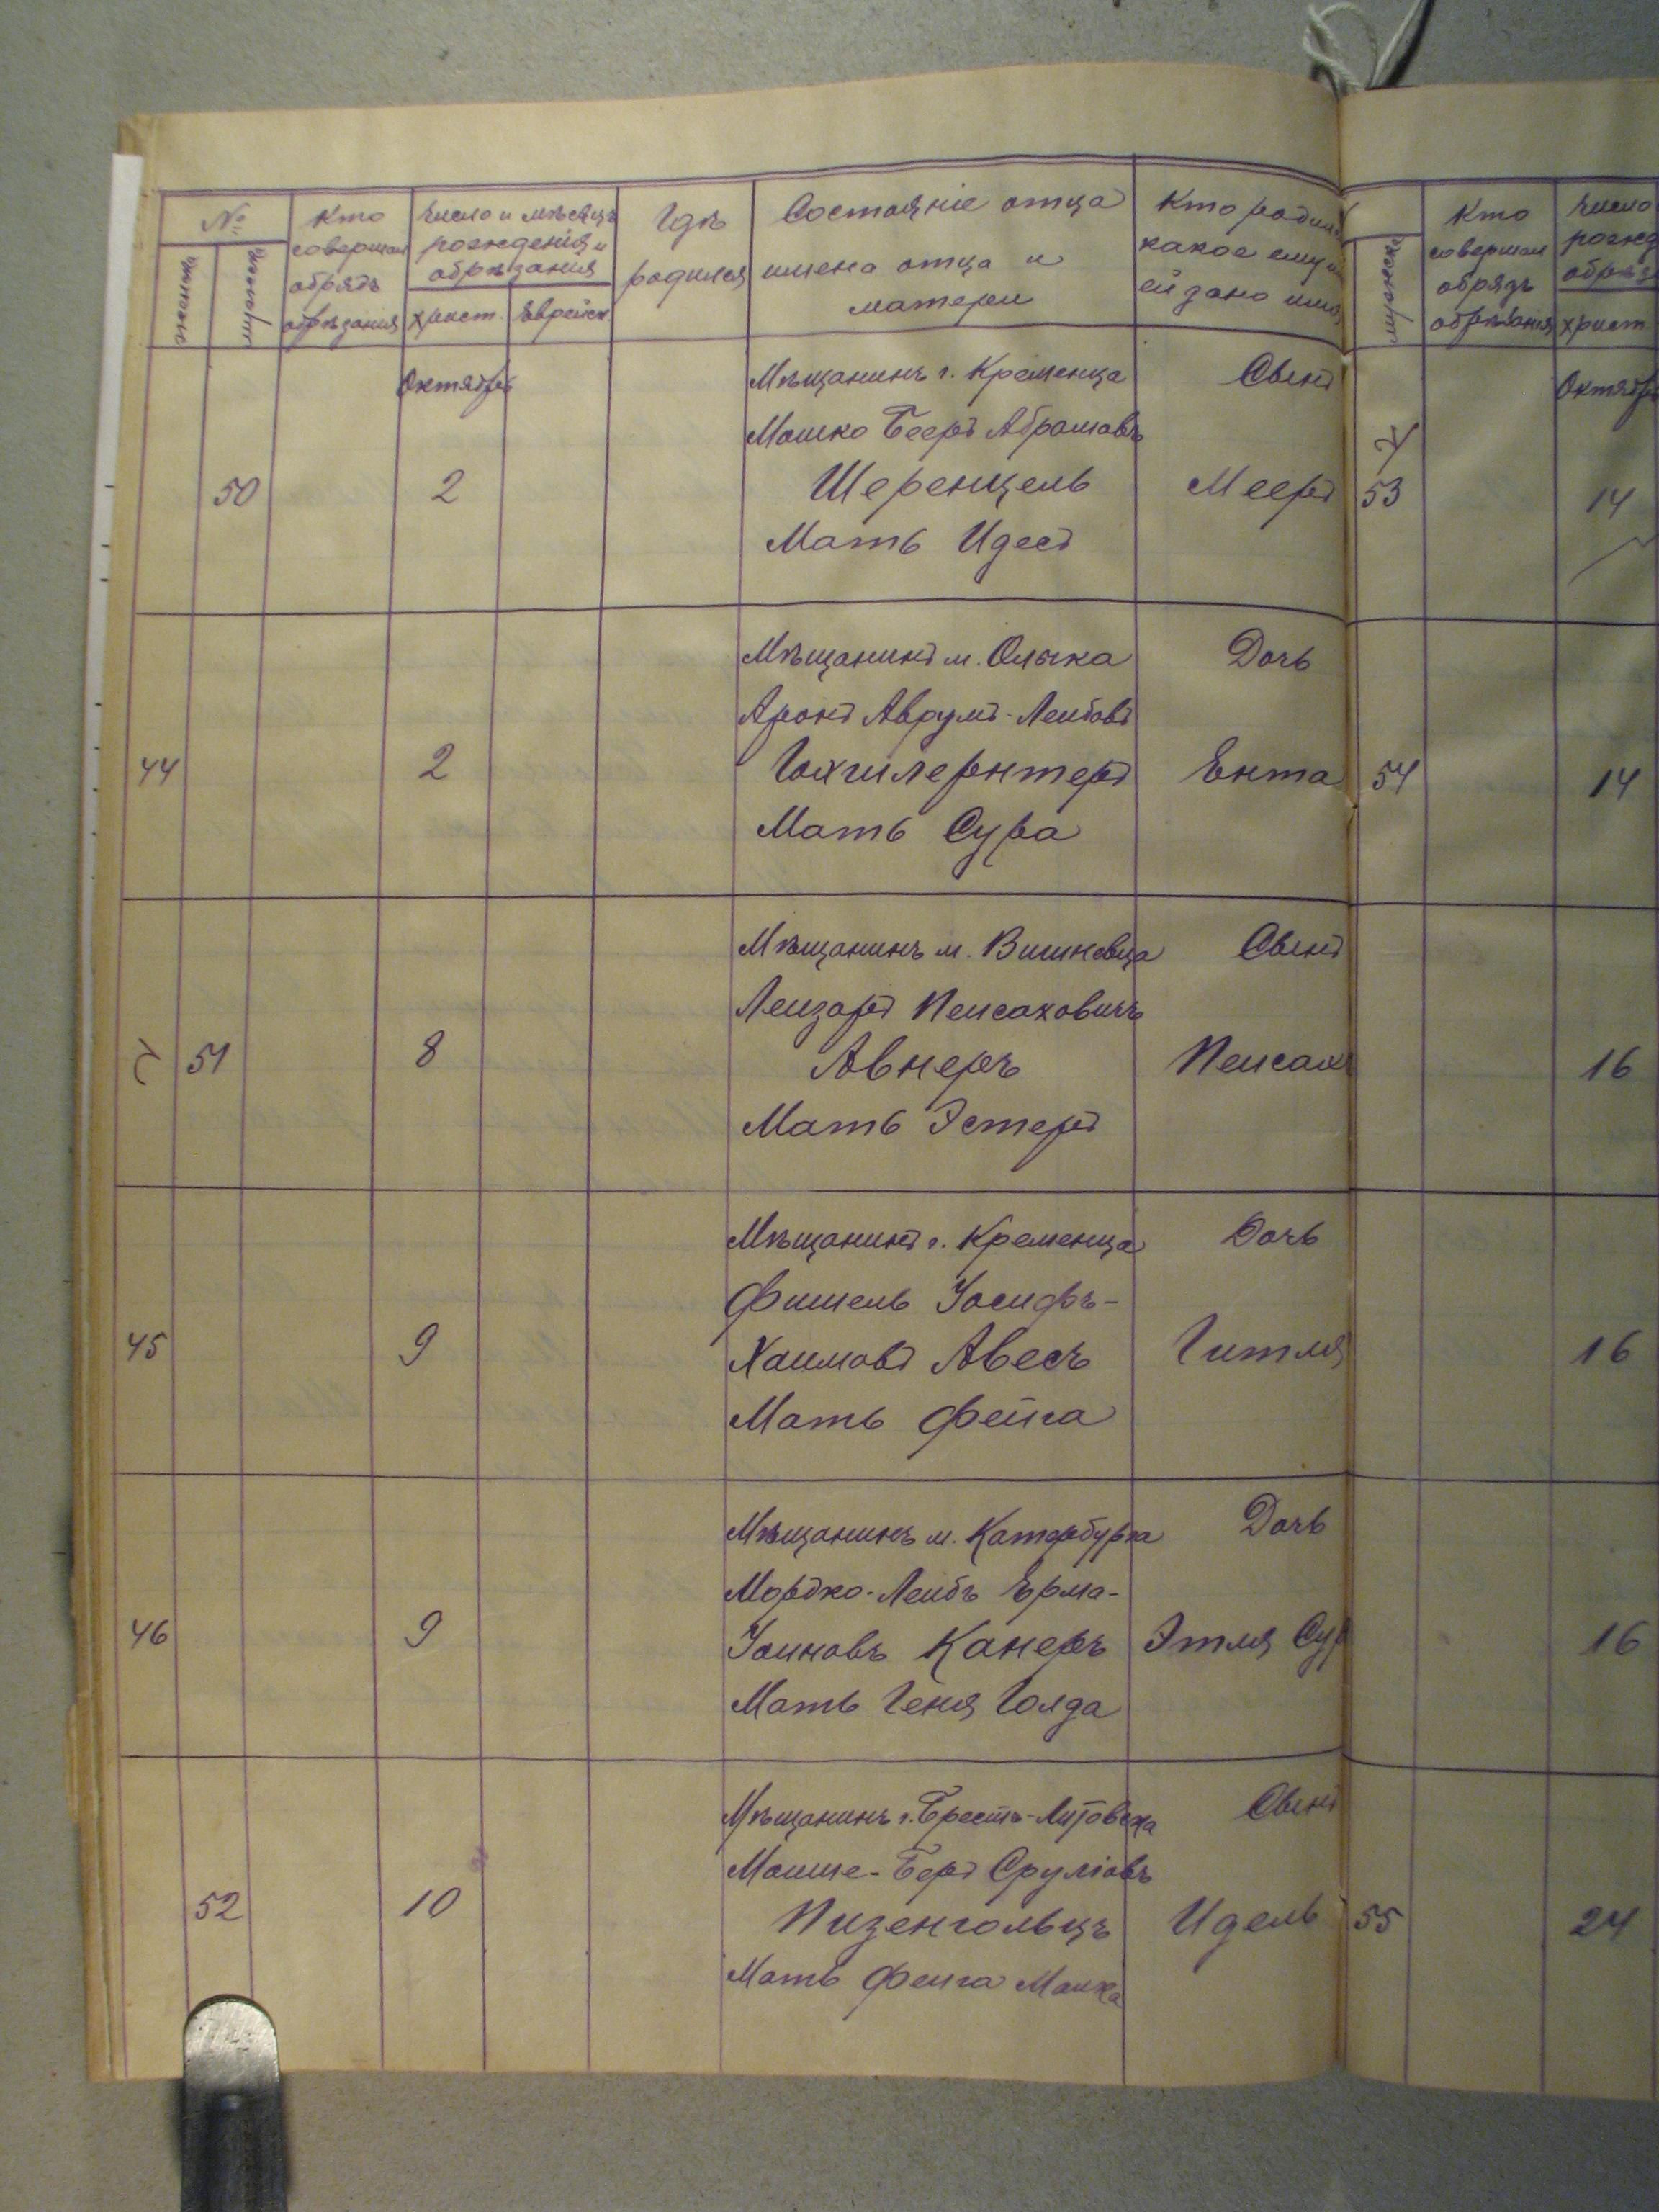 №
женска
мужеска
Кто
совершал
обрядъ
обрѣзанія
Число и мѣсяцъ
рожденія и
обрѣзанія
христ.
Еврейск.
Гдѣ
родился
Состояніе отца
имена отца и
матери
Кто родил
какое ему и
ей дано имя
Октября
50
2
Мѣщанинъ г. Кременца
Мошко Бееръ Абрамовъ
Шеренцель
Мать Идесъ
Сынъ
Мееръ
44
2
Мѣщанинъ м. Олыка
Аронъ Аврумъ-Лейбовъ
Гохгилернтеръ
Мать Сура
Дочь
Ента
51
8
Мѣщанинъ м. Вишневца
Лейзаръ Пейсаховичъ
Авнеръ
Мать Эстеръ
Сынъ
Пейсахъ
45
9
Мѣщанинъ г. Кременца
Фишель Іосифъ-
Хаимовъ Авесъ
Мать Фейга
Дочь
Гитля
46
9
Мѣщанинъ м. Катербурга
Мордко-Лейбъ Ерма-
Іоиновъ Канеръ
Мать Геня Голда
Дочь
Этля Сур
52
10
Мѣщанинъ г. Брестъ-Литовска
Мошше-Беръ Сруліовъ
Пизенгольцъ
Мать Фейга Малка
Сынъ
Идель
мужеска
Кто
совершал
обрядъ
обрѣзанія
Число
рожд
обрѣз
христ.
Октября
53
14
54
14
16
16
16
55
24